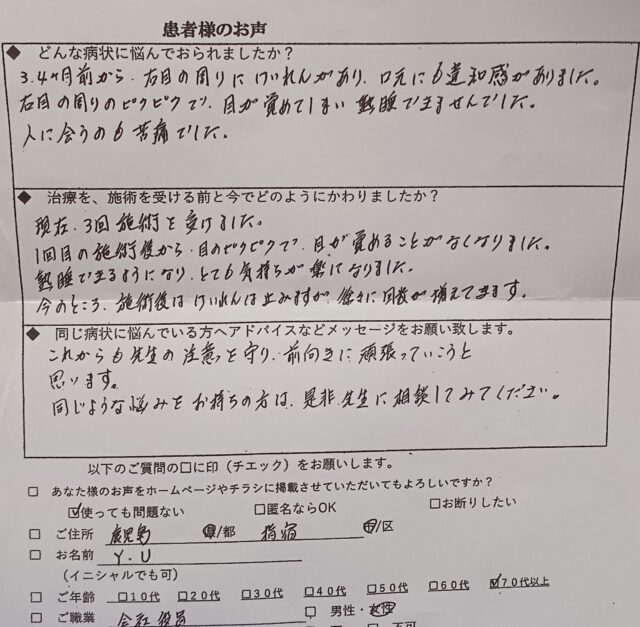 患者様のお声
◆ どんな病状に悩んでおられましたか？
3.4ヶ月前から、右目の周りにけいれんがあり、口元にも違和感がありました。
右目の周りのピクピクで、目が覚めてしまい熟睡できませんでした。
人に会うのも苦痛でした。
◆ 治療を、施術を受ける前と今でどのようにかわりましたか？
現在、3回施術を受けました。
1回目の施術後から、目のピクピクで、目が覚めることがなくなりました。
熟睡できるようになり、とても気持ちが楽になりました。
今のところ、施術後はけいれんは止みますが、徐々に回数が増えてきます。
◆ 同じ病状に悩んでいる方へアドバイスなどメッセージをお願い致します。
これからも先生の注意を守り、前向きに頑張っていこうと
思います。
同じような悩みをお持ちの方は、是非先生に相談してみてください。
以下のご質問の□に印（チェック）をお願いします。
□ あなた様のお声をホームページやチラシに掲載させていただいてもよろしいですか？
☑使っても問題ない □匿名ならOK □お断りしたい
□ ご住所 鹿児島 県/都 指宿 市/区
□ お名前 Y.U
（イニシャルでも可）
□ ご年齢 □10代 □20代 □30代 □40代 □50代 □60代 ☑70代以上
□ ご職業 会社役員 □ 男性・女性
□ 不可